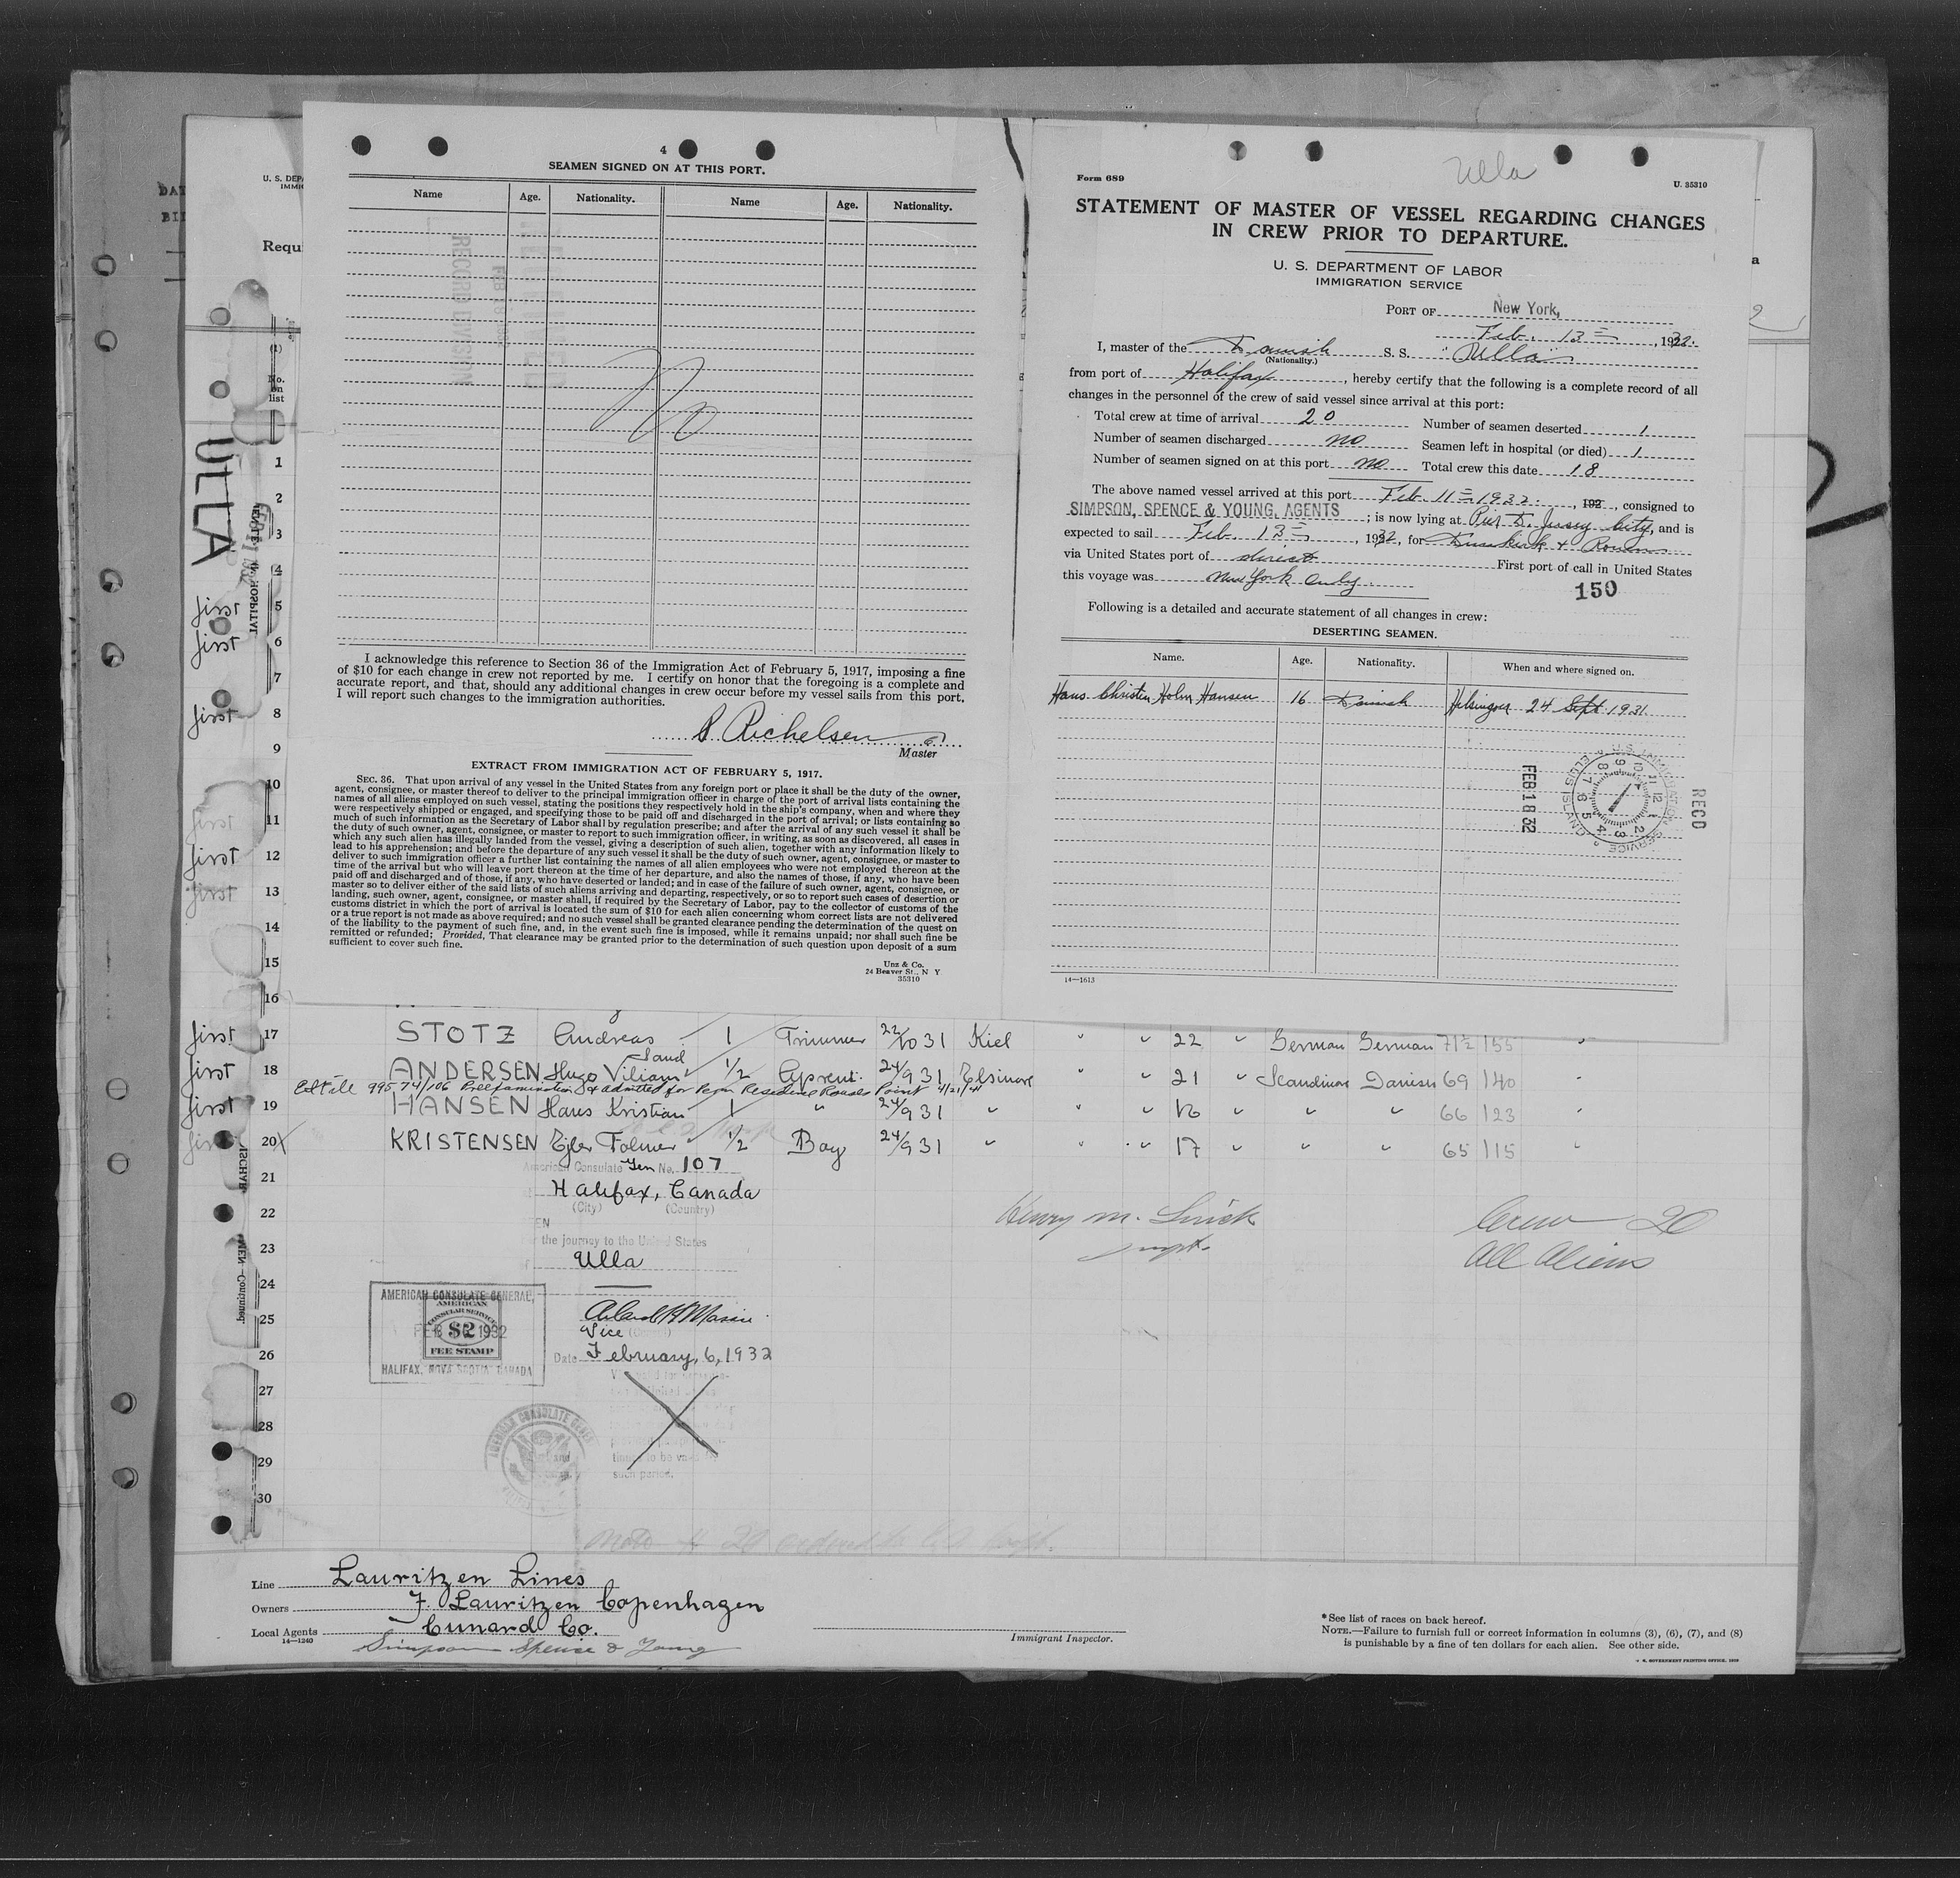 4
SEAMEN SIGNED ON AT THIS PORT.
Name Age. Nationality. Name Age. Nationality.
RECORD DIVISION
No
I acknowledge this reference to Section 36 of the Immigration Act of February 5, 1917, imposing a fine
of $10 for each change in crew not reported by me. I certify on honor that the foregoing is a complete and
accurate report, and that, should any additional changes in crew occur before my vessel sails from this port,
I will report such changes to the immigration authorities.
Richelsen
Master
EXTRACT FROM IMMIGRATION ACT OF FEBRUARY 5, 1917.
SEC. 36. That upon arrival of any vessel in the United States from any foreign port or place it shall be the duty of the owner,
agent, consignee, or master thereof to deliver to the principal immigration officer in charge of the port of arrival lists containing the
names of all aliens employed on such vessel, stating the positions they respectively hold in the ship's company, when and where they
were respectively shipped or engaged, and specifying those to be paid off and discharged in the port of arrival; or lists containing so
much of such information as the Secretary of Labor shall by regulation prescribe; and after the arrival of any such vessel it shall be
the duty of such owner, agent, consignee, or master to report to such immigration officer, in writing, as soon as discovered, all cases in
which any such alien has illegally landed from the vessel, giving a description of such alien, together with any information likely to
lead to his apprehension; and before the departure of any such vessel it shall be the duty of such owner, agent, consignee, or master to
deliver to such immigration officer a further list containing the names of all alien employees who were not employed thereon at the
time of the arrival but who will leave port thereon at the time of her departure, and also the names of those, if any, who have been
paid off and discharged and of those, if any, who have deserted or landed; and in case of the failure of such owner, agent, consignee, or
master so to deliver either of the said lists of such aliens arriving and departing, respectively, or so to report such cases of desertion or
landing, such owner, agent, consignee, or master shall, if required by the Secretary of Labor, pay to the collector of customs of the
customs district in which the port of arrival is located the sum of $10 for each alien concerning whom correct lists are not delivered
or a true report is not made as above required; and no such vessel shall be granted clearance pending the determination of the quest on
of the liability to the payment of such fine, and, in the event such fine is imposed, while it remains unpaid; nor shall such fine be
remitted or refunded; Provided, That clearance may be granted prior to the determination of such question upon deposit of a sum
sufficient to cover such fine.
Unz & Co.
24 Beaver St., N Y
35310
Ulla
Form 689 U. 35310
STATEMENT OF MASTER OF VESSEL REGARDING CHANGES
IN CREW PRIOR TO DEPARTURE.
U. S. DEPARTMENT OF LABOR
IMMIGRATION SERVICE
PORT OF New York,
Feb. 13 =, 1932.
I, master of the Danish S. S. "Ulla"
(Nationality.)
from port of Halifax, hereby certify that the following is a complete record of all
changes in the personnel of the crew of said vessel since arrival at this port:
Total crew at time of arrival 20 Number of seamen deserted 1
Number of seamen discharged no Seamen left in hospital (or died) 1
Number of seamen signed on at this port no Total crew this date 18
The above named vessel arrived at this port Feb. 11 = 1932., 192 , consigned to
SIMPSON, SPENCE & YOUNG, AGENTS ; is now lying at Pier D. Jersey City, and is
expected to sail Feb. 13 =, 1932, for Dunkirk & Rouen
via United States port of direct First port of call in United States
this voyage was New York only.
150
Following is a detailed and accurate statement of all changes in crew:
DESERTING SEAMEN.
Name. Age. Nationality. When and where signed on.
Hans Christian Holm Hansen 16 Danish Helsingør 24 Sept 1931.
RECD
U.S. IMMIGRATION SERVICE
ELLIS ISLAND
FEB 18 32
14—1613
U. S. DEPA
IMMIG
Requi
(1)
No. on list
ULLA
1
2
3
4
first 5
first 6
7
first 8
9
10
first 11
first 12
first 13
14
15
16
first 17 STOTZ Andreas 1 Trimmer 22/10 31 Kiel " " 22 " German German 71½ 155 "
first 18 ANDERSEN Hugo Viliam ½ Aprent. 24/9 31 Elsinore " " 21 " Scandinav Danish 69 140 "
Ed File 99574/106 Preexamination & admitted for Perm Residence Rouses Point 4/21/41
first 19 HANSEN Hans Kristian 1 " 24/9 31 " " " 16 " " " 66 123
first 20 X KRISTENSEN Ejler Folmer ½ Boy 24/9 31 " " " 17 " " " 65 115 "
American Consulate Gen No. 107
21
Halifax, Canada
(City) (Country)
22
Henry M.
Crew 20
All Aliens
the journey to the United States
23
Ulla
24
AMERICAN CONSULATE GENERAL,
AMERICAN
CONSULAR SERVICE
$2
FEB 6 1932
FEE STAMP
HALIFAX, NOVA SCOTIA CANADA
25
Vice
Date February, 6, 1932
26
27
28
29
such period.
30
Line Lauritzen Lines
Owners J. Lauritzen Copenhagen
Local Agents Cunard Co.
14—1240
Simpson Spence & Young
Immigrant Inspector.
* See list of races on back hereof.
NOTE.—Failure to furnish full or correct information in columns (3), (6), (7), and (8)
is punishable by a fine of ten dollars for each alien. See other side.